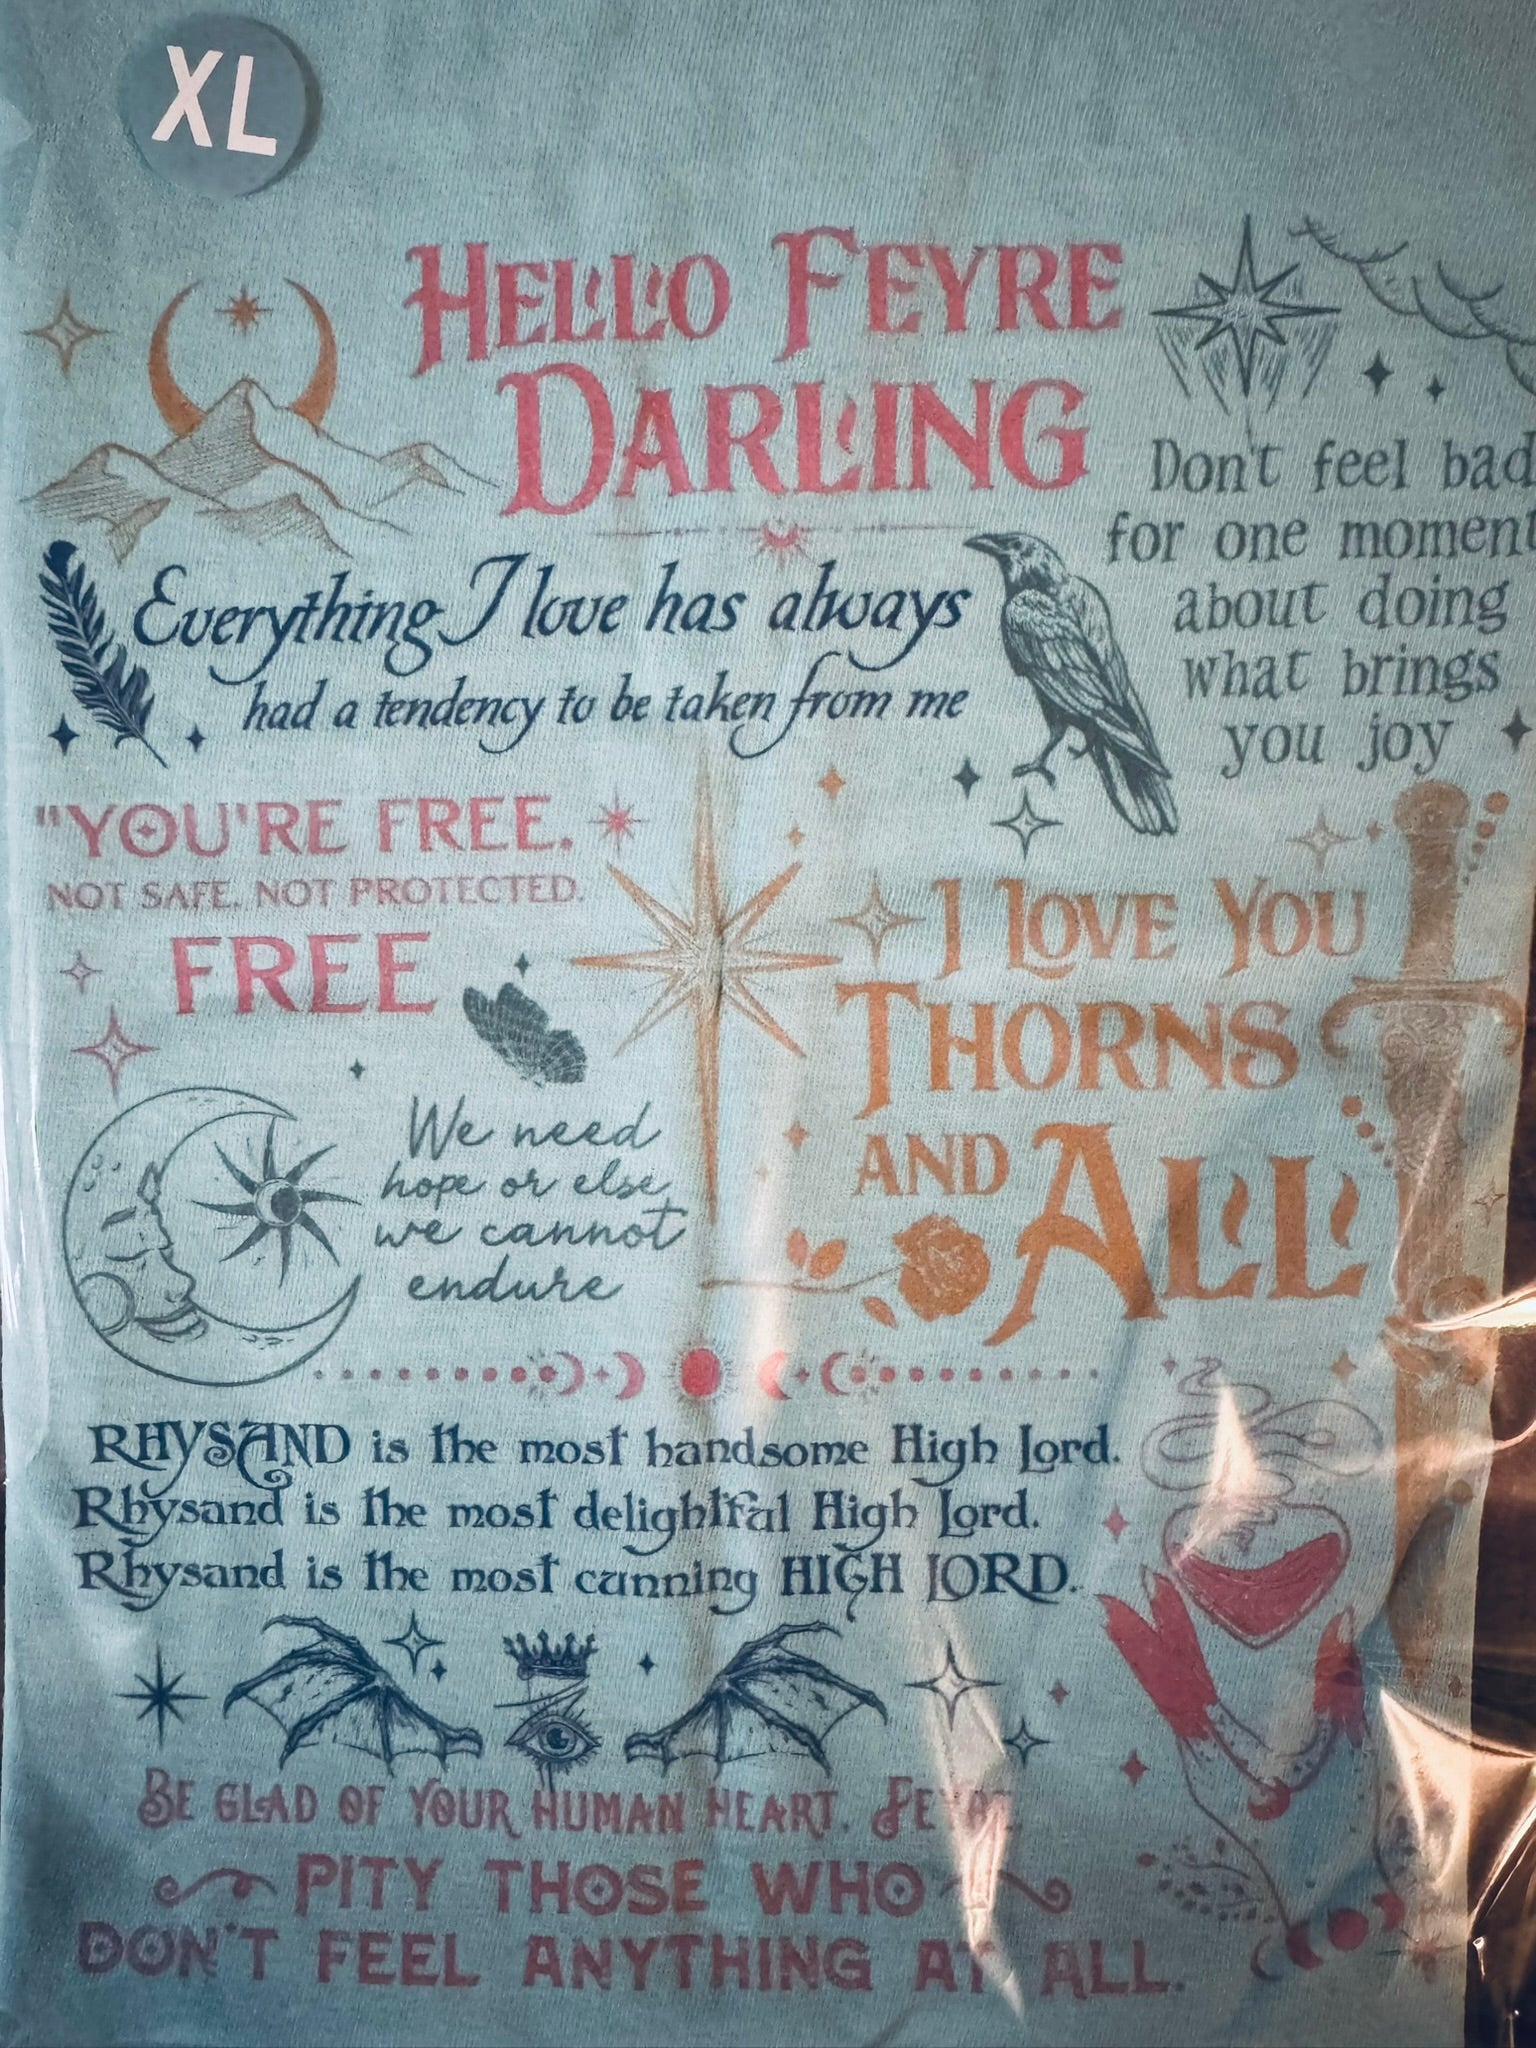 XL
HELLO FEYRE
DARLING
Don't feel bad
for one moment
about doing
what brings
you joy
Everything I love has always
had a tendency to be taken from me
"YOU'RE FREE.
NOT SAFE. NOT PROTECTED.
FREE
I LOVE YOU
THORNS
AND ALL
We need
hope or else
we cannot
endure
RHYSAND is the most handsome High Lord.
Rhysand is the most delightful High Lord.
Rhysand is the most cunning HIGH LORD.
BE GLAD OF YOUR HUMAN HEART. FEYRE
PITY THOSE WHO
DON'T FEEL ANYTHING AT ALL.